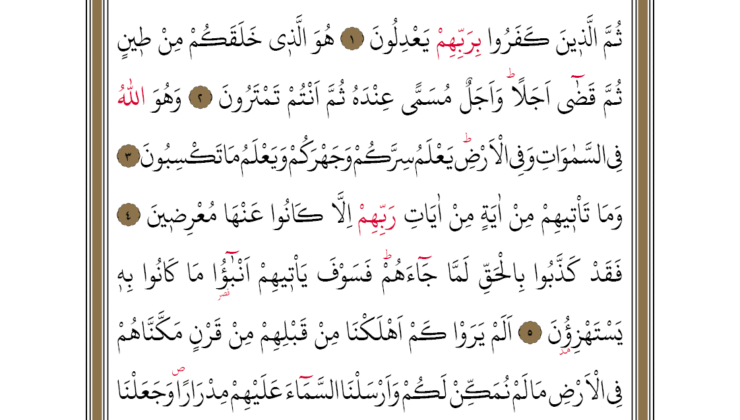 ثُمَّ الَّذ۪ينَ كَفَرُوا بِرَبِّهِمْ يَعْدِلُونَ ﴿١﴾ هُوَ الَّذ۪ي خَلَقَكُمْ مِنْ ط۪ينٍ
ثُمَّ قَضٰٓى اَجَلًاۜ وَاَجَلٌ مُسَمًّى عِنْدَهُ ثُمَّ اَنْتُمْ تَمْتَرُونَ ﴿٢﴾ وَهُوَ اللّٰهُ
فِي السَّمٰوَاتِ وَفِي الْاَرْضِۜ يَعْلَمُ سِرَّكُمْ وَجَهْرَكُمْ وَيَعْلَمُ مَا تَكْسِبُونَ ﴿٣﴾
وَمَا تَأْت۪يهِمْ مِنْ اٰيَةٍ مِنْ اٰيَاتِ رَبِّهِمْ اِلَّا كَانُوا عَنْهَا مُعْرِض۪ينَ ﴿٤﴾
فَقَدْ كَذَّبُوا بِالْحَقِّ لَمَّا جَٓاءَهُمْۜ فَسَوْفَ يَأْت۪يهِمْ اَنْبٰٓؤُ۬ا مَا كَانُوا بِه۪
يَسْتَهْزِؤُ۫نَ ﴿٥﴾ اَلَمْ يَرَوْا كَمْ اَهْلَكْنَا مِنْ قَبْلِهِمْ مِنْ قَرْنٍ مَكَّنَّاهُمْ
فِي الْاَرْضِ مَا لَمْ نُمَكِّنْ لَكُمْ وَاَرْسَلْنَا السَّمَٓاءَ عَلَيْهِمْ مِدْرَارًاۖ وَجَعَلْنَا